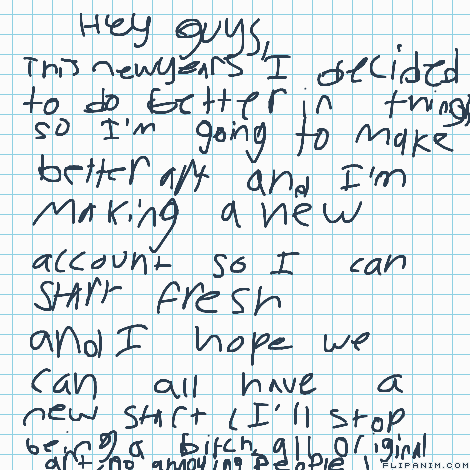 Hey guys,
This newyears I decided
to do better in things
so I'm going to make
better art and I'm
making a new
account so I can
start fresh
and I hope we
can all have a
new start (I'll stop
being a bitch, all original
art, no annoying people
FLIPANIM.COM